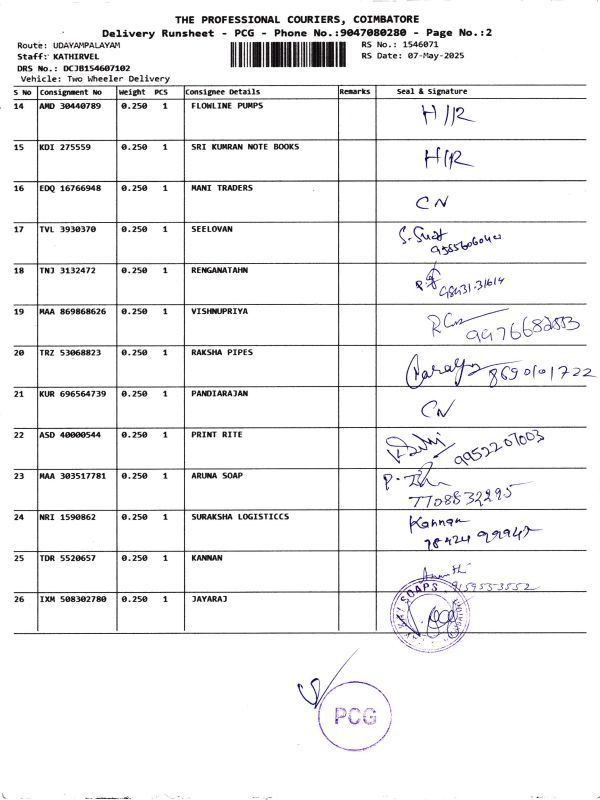 THE PROFESSIONAL COURIERS, COIMBATORE
Delivery Runsheet - PCG - Phone No.:9047080280 - Page No.:2
Route: UDAYAMPALAYAM RS No.: 1546071
Staff: KATHIRVEL RS Date: 07-May-2025
DRS No.: DCJB154607102
Vehicle: Two Wheeler Delivery
S No Consignment No Weight PCS Consignee Details Remarks Seal & Signature
14 AMD 30440789 0.250 1 FLOWLINE PUMPS H/R
15 KDI 275559 0.250 1 SRI KUMRAN NOTE BOOKS H/R
16 EDQ 16766948 0.250 1 MANI TRADERS CN
17 TVL 3930370 0.250 1 SEELOVAN
18 TNJ 3132472 0.250 1 RENGANATAHN 98431-31614
19 MAA 869868626 0.250 1 VISHNUPRIYA
20 TRZ 53068823 0.250 1 RAKSHA PIPES 8690101722
21 KUR 696564739 0.250 1 PANDIARAJAN CN
22 ASD 40000544 0.250 1 PRINT RITE 9952207003
23 MAA 303517781 0.250 1 ARUNA SOAP 7708832295
24 NRI 1590862 0.250 1 SURAKSHA LOGISTICCS Kannan
25 TDR 5520657 0.250 1 KANNAN 9159553552
26 IXM 508302780 0.250 1 JAYARAJ
SOAPS
PCG